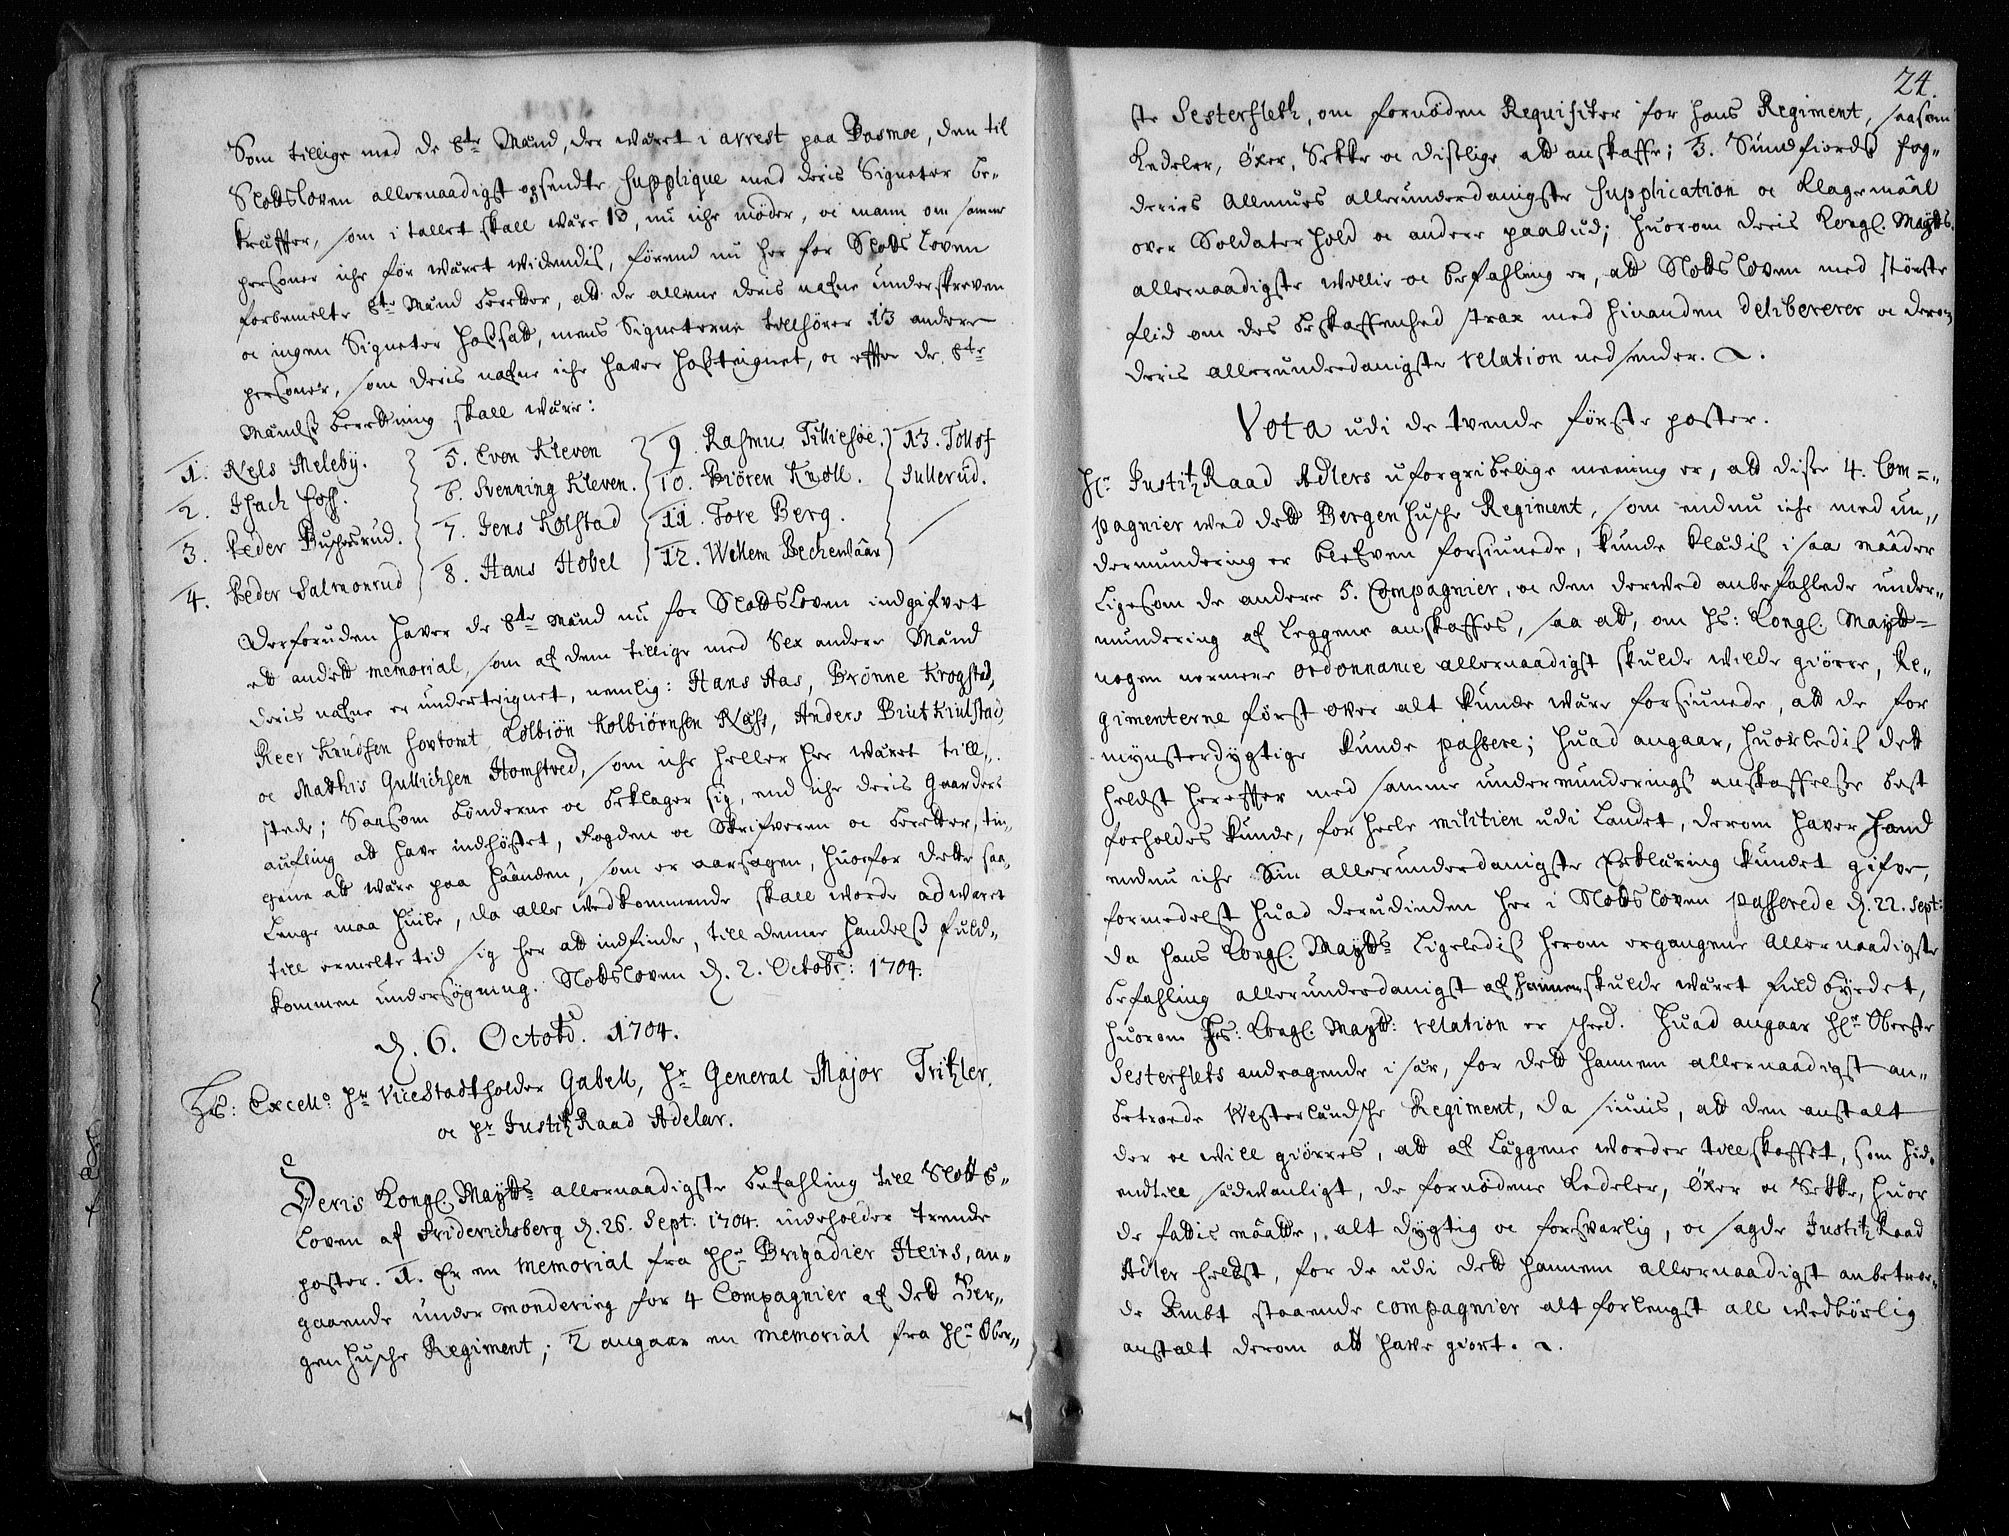 Som tillige med de 8te Mænd, der wäret i arrest paa Basmoe, den til
Slottsloven allernaadigst opsendte Supplique med deris Signeter be-
kreffter, som i tallet skall wäre 13, nu iche møder, oc mann om samme
personer iche før wäret widendis, førend nu her for Slotts Loven
forbemelte 8te Mænd beretter, att de allene deris nafne underskreven
oc ingen Signeter hossatt, mens Signeterne tillhører 13 andere
personer, som deris nafne iche haver hosteignet, oc effter de 8te
Mændss beretning skall wäre:
1. Nels Meleby.
2. Isach Foss.
3. Peder Buchesrud.
4. Peder Salmonrud
5. Even Kleven
6. Svenning Kleven.
7. Jens Kolstad
8. Hans Hobel
9. Rasmus Tilliesøe.
10. Biören Knoll.
11. Tore Berg.
12. Willem Bechewäar
13. Tollof
Sullerud.
Derforuden haver de 8te Mænd nu for Slottsloven indgifvet
ett andett memorial, som af dem tillige med Sex andere Mænd
deris nafne er underteignet, nemlig: Hans Aas, Brönne Krogstad,
Reer Knudsen Hovtomt, Colbiön Kolbiörnsen Næss, Anders Brutkiulstad,
oc Mathis Gullichsen Homstved, som iche heller her wäret till-
stede; Saasom bönderne oc beklager sig, end iche deris Gaarders
aufling att have indhöstet, Fogden oc Skrifveren oc beretter, tin-
gene att wäre paa haanden, som er aarsagen, huorfor dette saa
Lenge maa huile, da alle wedkommende skall worde adwaret
till ermelte tid sig her att indfinde, till denne handelss fuld-
kommen undersögning. Slottsloven d. 2. Octobr: 1704.
d. 6. Octobr. 1704.
Hs: Excell: Hr ViceStadtholder Gabell, Hr General Major Tritzler,
oc Hr Justitz Raad Adeler.
Deris Kongl. Maytts allernaadigste befahling till Slotts-
Loven af Friderichsberg d. 26. Sept: 1704. indeholder trende
poster. 1. Er en memorial fra Hr Brigadier Heins, an-
gaaende under mondering for 4 Compagnier af dett Ber-
genhusche Regiment; 2 angaar en memorial fra Hr Ober-
24.
ste Sesterfleth, om fornøden Requisiter for hans Regiment, saasom
Kedeler, Öxer, Sekke oc distlige att anskaffe; 3. Sundfiords fog-
deries Allmues allerunderdanigste Supplication oc Klagemaal
over Soldaterhold oc andere paabud; huorom deris Kongl. Maytts
allernaadigste wellie oc befahling er, att Slottsloven med største
flid om des beskaffenhed strax med hinanden delibererer oc derom
deris allerunderdanigste relation nedsender.
Vota udi de tvende første poster.
Hr Justitz Raad Adlers uforgribelige meening er, att disse 4. Com-
pagnier wed dett Bergenhusche Regiment, som endnu iche med un-
dermundering er bleven forsiunede, kunde klædis i saa maader
ligesom de andere 5. Compagnier, oc den derwed anbefahlede under-
mundering af Leggene anskaffes, saa att, om Hs: Kongl. Maytt
nogen nermere ordonnance allernaadigst skulde wilde giøre, Re-
gimenterne først over alt kunde wäre forsiunede, att de for
mynsterdygtige kunde passere; huad angaar, huorledis dett
heldst hereffter med samme undermunderings anskaffelsse best
forholdes kunde, for heele militien udi Landet, derom haver hand
endnu iche Sin allerunderdanigste Erklæring kundet gifve,
formedelst huad derudinden her i Slottsloven passerede d. 22. Sept:
da hans Kongl. Maytts ligeledis herom ergangene Allernaadigste
befahling allerunderdanigst af hannem skulde wäret fuldbyrdet,
huorom Hs: Kongl. Maytt: relation er scheed. Huad angaar Hr Oberste
Sesterflets andragende i sær, for dett hannem allernaadigst an-
betroede Westerlandsche Regiment, da siunis, att den anstalt
der oc will giørres, att af Läggene worder tillskaffet, som hid-
endtill sedwanligt, de fornødene Kedeler, Öxer oc Sekke, huor
de fattis maatte, alt dygtig oc forsvarlig, oc sagde Justitz Raad
Adler heldst, for de udi dett hannem allernaadigst anbetroe-
de Ambt staaende compagnier alt forlengst all wedbørlig
anstalt derom att have giort.